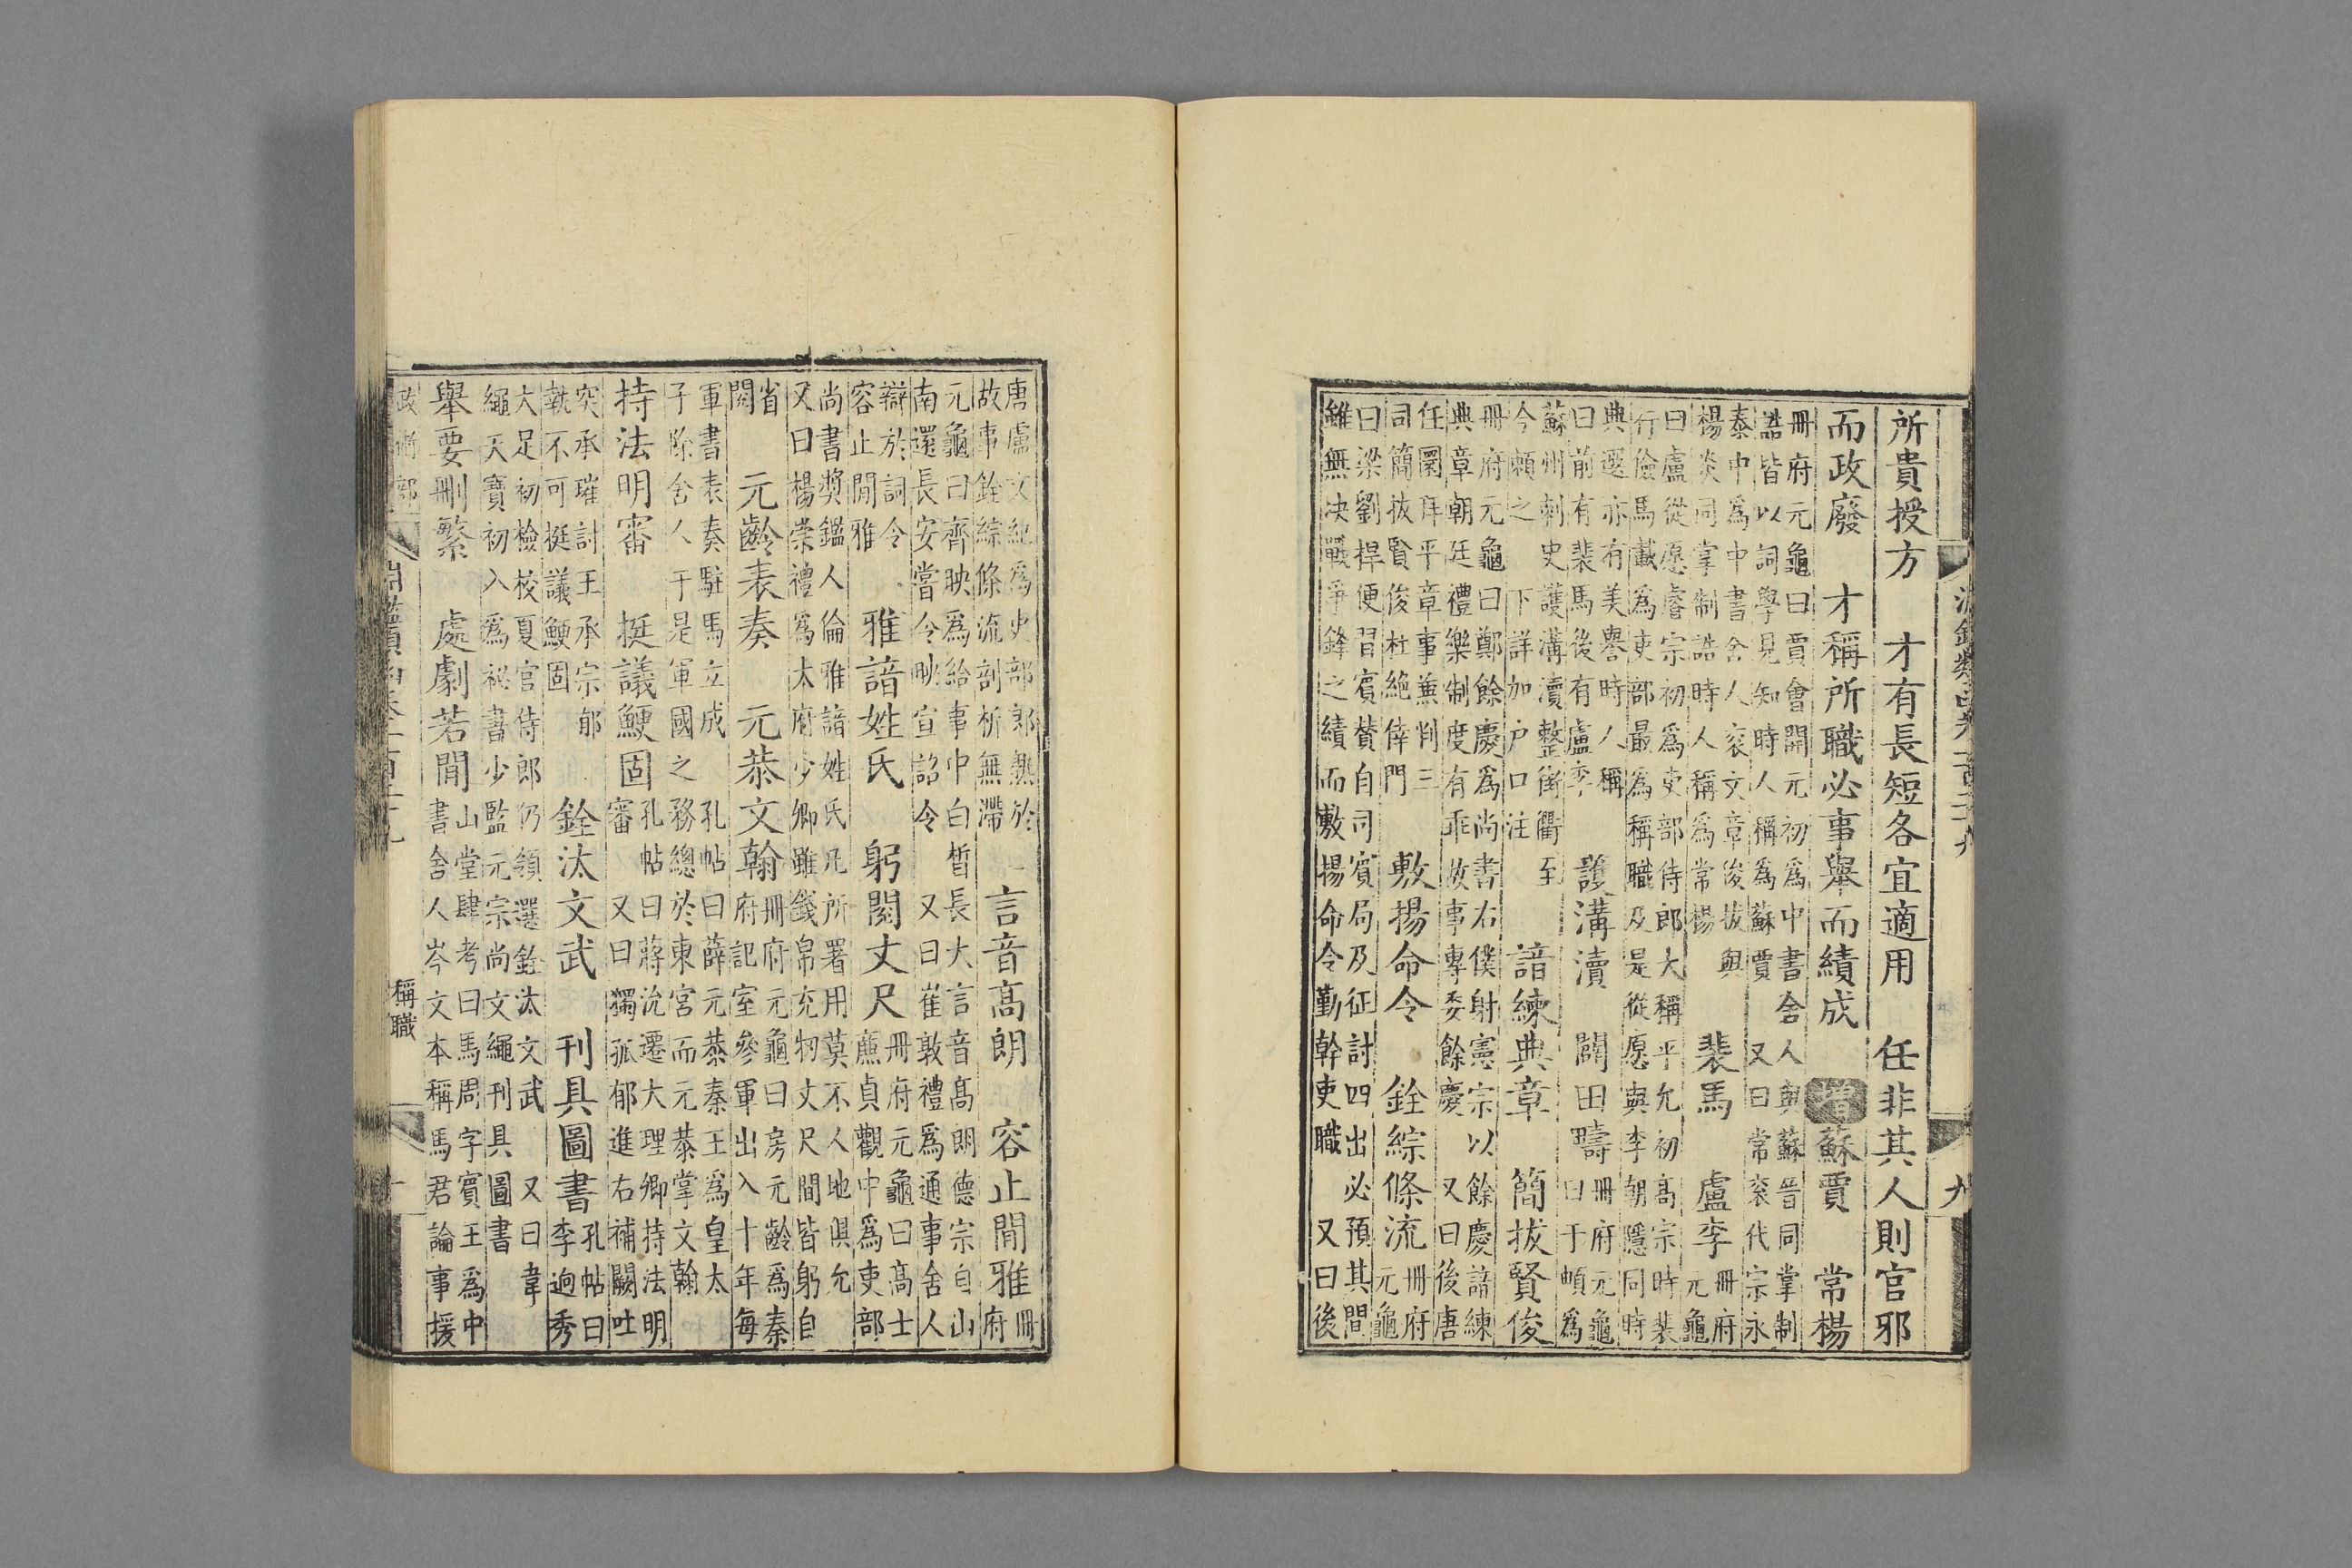 所貴授方　才有長短各宜適用　任非其人則官邪
而政廢　才稱所職必事舉而績成　增蘇賈　常楊
冊府元龜曰賈會開元初為中書舍人與蘇晉同掌制
誥皆以詞學見知時人稱為蘇賈　又曰常袞代宗永
泰中為中書舍人袞文章俊拔與
楊炎同掌制誥時人稱為常楊
裴馬　盧李
冊府元龜
曰盧從愿睿宗初為吏部侍郎大稱平允初高宗時裴
行儉馬載為吏部最為稱職及是從愿與李朝隱同時
典選亦有美譽時人稱
曰前有裴馬後有盧李
護溝瀆　闢田疇
冊府元龜
曰于頔為
蘇州刺史護溝瀆整街衢至
今賴之　下詳加戶口注
諳練典章　簡拔賢俊
冊府元龜曰鄭餘慶為尚書右僕射憲宗以餘慶諳練
典章朝廷禮樂制度有乖故事專委餘慶　又曰後唐
任圜拜平章事兼判三
司簡拔賢俊杜絕倖門
敷揚命令　銓綜條流
冊府
元龜
曰梁劉捍便習賓贊自司賓局及征討四出必預其間
雖無決戰爭鋒之績而敷揚命令勤幹吏職　又曰後
九
唐盧文紀為吏部郎熟於
故事銓綜條流剖析無滯
言音高朗　容止閒雅
冊
府
元龜曰齊映為給事中白皙長大言音高朗德宗自山
南還長安當令映宣詔令　又曰崔敦禮為通事舍人
辯於詞令
容止閒雅
雅諳姓氏　躬閱丈尺
冊府元龜曰高士
廉貞觀中為吏部
尚書獎鑑人倫雅諳姓氏凡所署用莫不人地俱允
又曰楊崇禮為太府少卿雖錢帛充牣丈尺間皆躬自
省
閱
元齡表奏　元恭文翰
冊府元龜曰房元齡為秦
府記室參軍出入十年每
軍書表奏駐馬立成　孔帖曰薛元恭秦王為皇太
子除舍人于是軍國之務總於東宮而元恭掌文翰
持法明審　挺議鯁固
孔帖曰蔣沇遷大理卿持法明
審　又曰獨孤郁進右補闕吐
突承璀討王承宗郁
執不可挺議鯁固
銓汰文武　刊具圖書
孔帖曰
李迥秀
大足初檢校夏官侍郎仍領選銓汰文武　又曰韋
繩天寶初入為祕書少監元宗尚文繩刊具圖書
舉要刪繁　處劇若閒
山堂肆考曰馬周字賓王為中
書舍人岑文本稱馬君論事援
政術部
淵鑑類函卷一百二十九
稱職